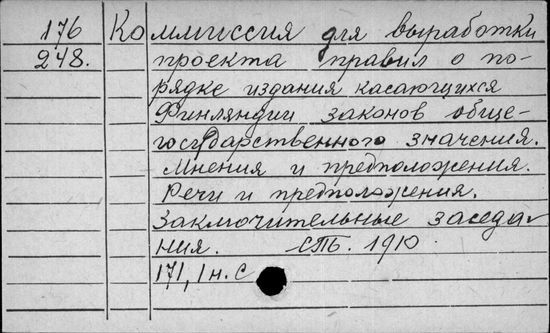 176 Коммиссия для выработки
248. проекта правил о по-
рядке издания касающихся
Финляндии законов обще-
государственного значения.
Мнения и предположения.
Речи и предположения.
Заключительные заседа-
ния. СПБ. 1910.
171, 1 н. с